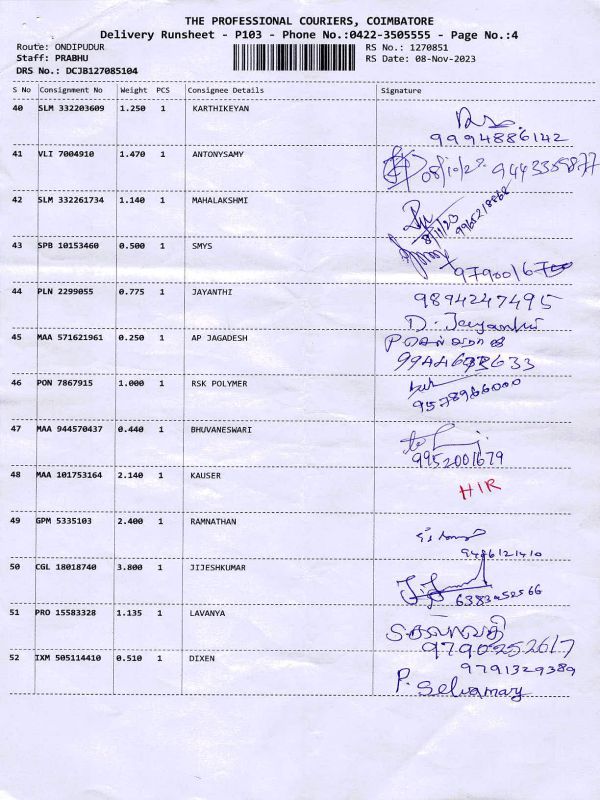 THE PROFESSIONAL COURIERS, COIMBATORE
Delivery Runsheet - P103 - Phone No.:0422-3505555 - Page No.:4
Route: ONDIPUDUR RS No.: 1270851
Staff: PRABHU RS Date: 08-Nov-2023
DRS No.: DCJB127085104
S No Consignment No Weight PCS Consignee Details Signature
40 SLM 332203609 1.250 1 KARTHIKEYAN
9994886142
41 VLI 7004910 1.470 1 ANTONYSAMY
42 SLM 332261734 1.140 1 MAHALAKSHMI
8/11/23 9965218868
43 SPB 10153460 0.500 1 SMYS
44 PLN 2299055 0.775 1 JAYANTHI 9894247495
D. Jeyanthi
45 MAA 571621961 0.250 1 AP JAGADESH
46 PON 7867915 1.000 1 RSK POLYMER
9578966000
47 MAA 944570437 0.440 1 BHUVANESWARI
9952001679
48 MAA 101753164 2.140 1 KAUSER HIR
49 GPM 5335103 2.400 1 RAMNATHAN
9486121410
50 CGL 18018740 3.800 1 JIJESHKUMAR
6383452566
51 PRO 15583328 1.135 1 LAVANYA
9790252617
52 IXM 505114410 0.510 1 DIXEN 9791329389
P. Selvamary